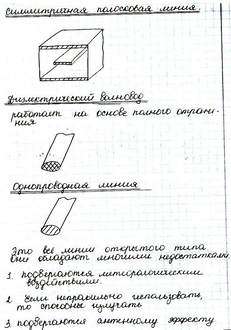 Симметричная полосковая линия.
Диэлектрический волновод
работает на основе полного отраже-
ния
Однопроводная линия
Это все линии открытого типа
они обладают многими недостатками.
1. подвергаются метеорологическим
воздействиям.
2. Если неправильно использовать,
то способны излучать
3. подвергаются антенному эффекту